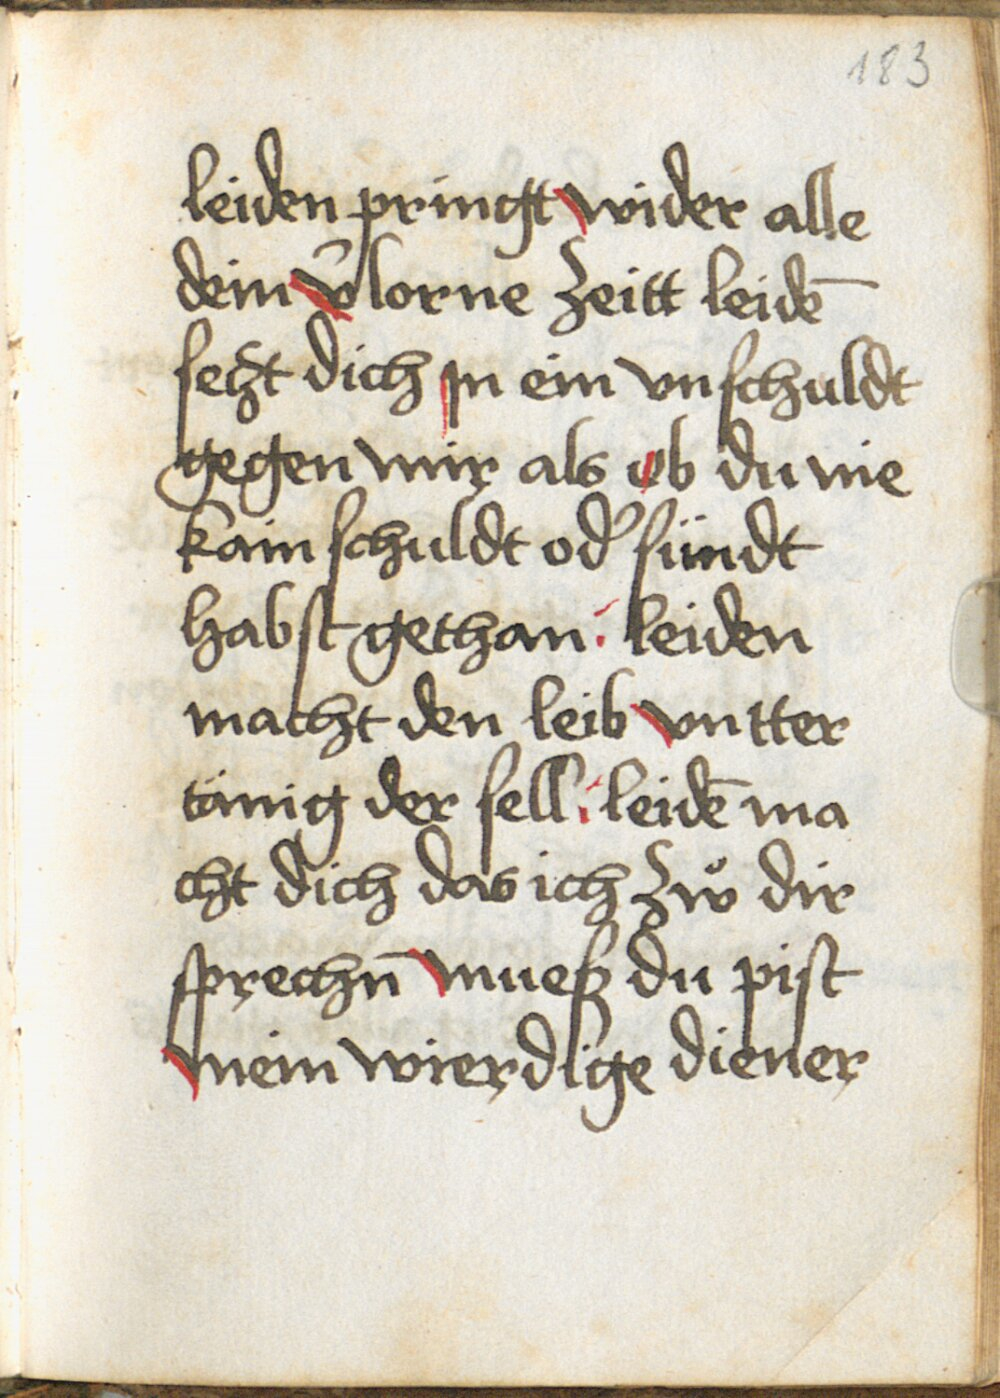 183
leiden pringt wider alle
dein v̄lorne zeitt leidē
seczt dich in ein vnschuldt
gegen mir als ob du nie
kain schuldt od' sündt
habst gethan : leiden
macht den leib vntter
tänig der sell : leidē ma
cht dich das ich zwͦ dir
sprechn̄ mueß du pist
mein wierdige diener